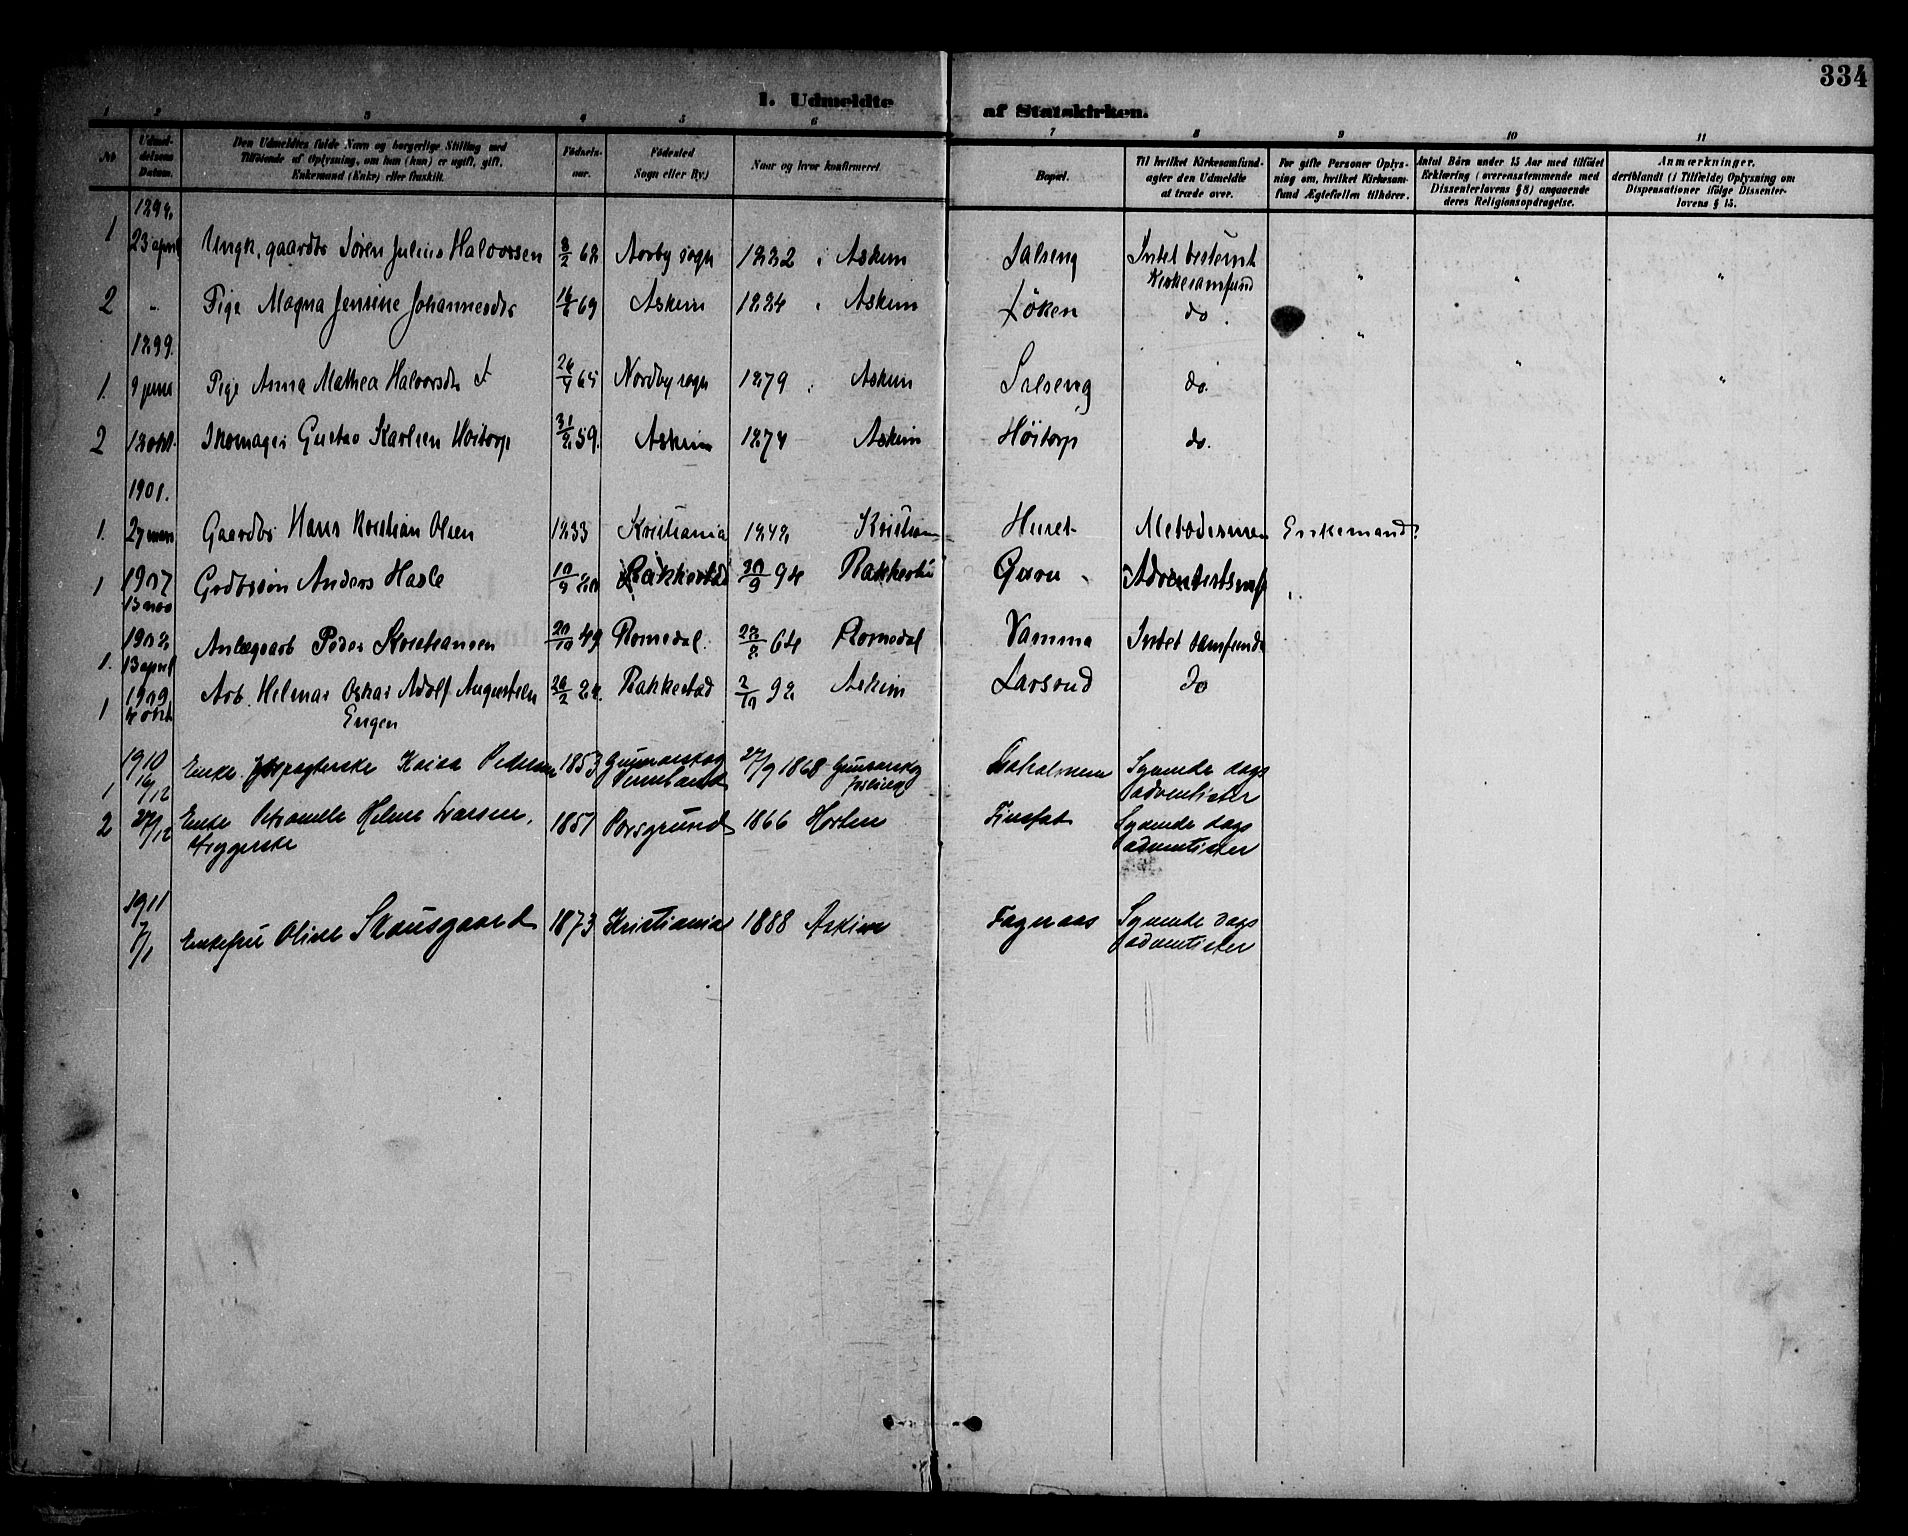 334
I. Udmeldte af Statskirken.
1 2 3 4 5 6 7 8 9 10 11
No. Udmeldelsens Datum. Den Udmeldtes fulde Navn og borgerlige Stilling med Tilføiende af Oplysning, om han (hun) er ugift, gift, Enkemand (Enke) eller fraskilt. Fødselsaar. Fødested Sogn eller By.) Naar og hvor konfirmeret. Bopæl. Til hvilket Kirkesamfund agter den Udmeldte at træde over. For gifte Personer Oplysning om, hvilket Kirkesamfund Ægtefællen tilhører. Antal Børn under 15 Aar med tilføiet Erklæring (overensstemmende med Dissenterlovens § 8) angaaende deres Religionsopdragelse. Anmærkninger, deriblandt (i Tilfælde) Oplysning om Dispensationer ifølge Dissenterlovens § 15.
1898.
1 23 april Ungk. gaardbr Søren Julius Halvorsen 8/2 68 Norby sogn 1882 i Askim Salseng Intet bestemt " " "
Kirkesamfund
2 - Pige Magna Jensine Johannesdtr 69 Askim 1884 " Askim Løken do. " "
1899.
1. 9 juni Pige Anna Mathea Halvorsdtr 65 Nordby sogn 1879 : Askim Salseng do. "
2 13 okt. Skomager Gustav Karlsen Höitorp 59. Askim 1874 Askim Höitorp do.
1901.
1. 27 mars Gaardbr Hans Kristian Olsen 1833 Kristiania 1848 Kristian Huret Metodismen Enkemand.
1 1907 Grdbrsøn Anders Hasle 10/9 80 Rakkestad 30/9 94 Rakkestad
13 nov
1908 Anlægsarb Peder Kristiansen 20/10 49 Romedal. 64 Romedal Vamma Intet samfund
1. 13 april
1909 Arb. Helmar Oskar Adolf Augustsen 26/2 Rakkestad 2/10 92 Askim Larsrud do
1 4 okt Engen
1910 Enke Kaisa Pedersen 1853 Gunnarskog 27/9 1868 Gunnarskog Syvende dags
1 16/12 Vermland adventister
2 27/12 Enke Petronelle Helene Larsen, 1851 Porsgrund 1866 Horten Syvende dags
adventister
1911
7/1 Enkefru Olive Skausgaard 1873 Kristiania 1888 Askim Fagernaas Syvende dags
adventister